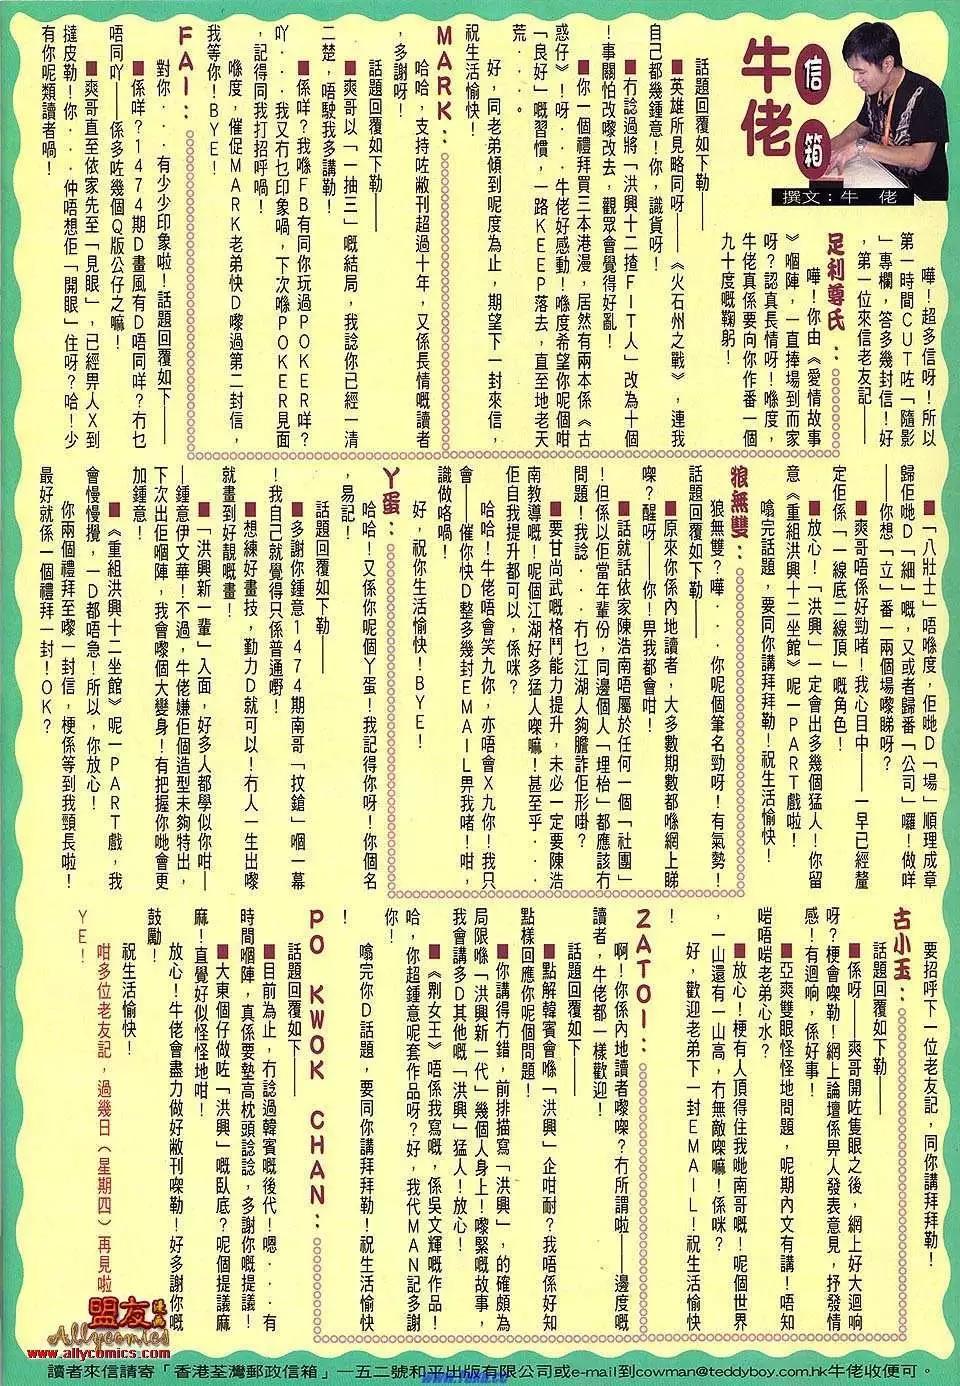 信箱
牛佬
撰文：牛　佬
嘩！超多信呀！所以
第一時間ＣＵＴ咗「隨影
」專欄，答多幾封信！好
，第一位來信老友記——
足利尊氏：
嘩！你由《愛情故事
》嗰陣，一直捧場到而家
呀？認真長情呀！喺度，
牛佬真係要向你作番一個
九十度嘅鞠躬！
話題回覆如下勒——
■英雄所見略同呀——《火石州之戰》，連我
自己都幾鍾意！你，識貨呀！
■冇諗過將「洪興十二揸ＦＩＴ人」改為十個
！事關怕改嚟改去，觀眾會覺得好亂！
■你一個禮拜買三本港漫，居然有兩本係《古
惑仔》！呀．．．牛佬好感動！喺度希望你呢個咁
「良好」嘅習慣，一路ＫＥＥＰ落去，直至地老天
荒．．．。
好，同老弟傾到呢度為止，期望下一封來信，
祝生活愉快！
ＭＡＲＫ：
哈哈，支持咗敝刊超過十年，又係長情嘅讀者
，多謝呀！
話題回覆如下勒——
■爽哥以「一抽三」嘅結局，我諗你已經一清
二楚，唔駛我多講勒！
■係咩？我喺ＦＢ有同你玩過ＰＯＫＥＲ咩？
吖．．．我又冇乜印象喎，下次喺ＰＯＫＥＲ見面
，記得同我打招呼喎！
喺度，催促ＭＡＲＫ老弟快Ｄ嚟過第二封信，
我等你！ＢＹＥ！
ＦＡＩ：
對你．．．有少少印象啦！話題回覆如下——
■係咩？１４７４期Ｄ畫風有Ｄ唔同咩？冇乜
唔同吖——係多咗幾個Ｑ版公仔之嘛！
■爽哥直至依家先至「見眼」，已經畀人Ｘ到
撻皮勒！你．．．仲唔想佢「開眼」住呀？哈！少
有你呢類讀者喎！
■「八壯士」唔喺度，佢哋Ｄ「場」順理成章
歸佢哋Ｄ「細」嘅，又或者歸番「公司」囉！做咩
——你想「立」番一兩個場嚟睇呀？
■爽哥唔係好勁啫！我心目中——一早已經釐
定佢係「一線底二線頂」嘅角色！
■放心！「洪興」一定會出多幾個猛人！你留
意《重組洪興十二坐館》呢一ＰＡＲＴ戲啦！
噏完話題，要同你講拜拜勒！祝生活愉快！
狼無雙：
狼無雙？嘩．．．你呢個筆名勁呀！有氣勢！
話題回覆如下勒——
■原來你係內地讀者，大多數期數都喺網上睇
㗎？醒呀——你！畀我都會咁！
■話就話依家陳浩南唔屬於任何一個「社團」
！但係以佢當年輩份，同邊個人「埋枱」都應該冇
問題！我諗．．．冇乜江湖人夠膽詐佢形啩？
■要甘尚武嘅格鬥能力提升，未必一定要陳浩
南教導嘅！呢個江湖好多猛人㗎嘛！甚至乎．．．
佢自我提升都可以，係咪？
哈哈！牛佬唔會笑九你，亦唔會Ｘ九你！我只
會——催你快Ｄ整多幾封ＥＭＡＩＬ畀我啫！咁，
識做咯喎！
好，祝你生活愉快！ＢＹＥ！
丫蛋：
哈哈！又係你呢個丫蛋！我記得你呀！你個名
，易記！
話題回覆如下勒——
■多謝你鍾意１４７４期南哥「抆鎗」嗰一幕
！我自己就覺得只係普通嘢！
■想練好畫技，勤力Ｄ就可以！冇人一生出嚟
就畫到好靚嘅畫！
■「洪興新一輩」入面，好多人都學似你咁——
——鍾意伊文華！不過，牛佬嫌佢個造型未夠特出，
下次出佢嗰陣，我會嚟個大變身！有把握你哋會更
加鍾意！
■《重組洪興十二坐館》呢一ＰＡＲＴ戲，我
會慢慢攪，一Ｄ都唔急！所以，你放心！
你兩個禮拜至嚟一封信，梗係等到我頸長啦！
最好就係一個禮拜一封！ＯＫ？
要招呼下一位老友記，同你講拜拜勒！
古小玉：
話題回覆如下勒——
■係呀——爽哥開咗隻眼之後，網上好大迴响
呀？梗會㗎勒！網上論壇係畀人發表意見，抒發情
感！有迴响，係好事！
■亞爽雙眼怪怪地問題，呢期內文有講！唔知
啱唔啱老弟心水？
■放心！梗有人頂得住我哋南哥嘅！呢個世界
，一山還有一山高，冇無敵㗎嘛！係咪？
好，歡迎老弟下一封ＥＭＡＩＬ！祝生活愉快
！
ＺＡＴＯＩ：
啊！你係內地讀者嚟㗎？冇所謂啦——邊度嘅
讀者，牛佬都一樣歡迎！
話題回覆如下——
■點解韓賓會喺「洪興」企咁耐？我唔係好知
點樣回應你呢個問題！
■你講得冇錯，前排描寫「洪興」，的確頗為
局限喺「洪興新一代」幾個人身上！嚟緊嘅故事，
我會講多Ｄ其他嘅「洪興」猛人！放心！
■《刑女王》唔係我寫嘅，係吳文輝嘅作品！
哈，你超鍾意呢套作品呀？好，我代ＭＡＮ記多謝
你！
噏完你Ｄ話題，要同你講拜拜勒！祝生活愉快
！
ＰＯ　ＫＷＯＫ　ＣＨＡＮ：
話題回覆如下——
■目前為止，冇諗過韓賓嘅後代！嗯．．．有
時間嗰陣，真係要墊高枕頭諗諗，多謝你嘅提議！
■大東個仔做咗「洪興」嘅臥底？呢個提議麻
麻！直覺好似怪怪地咁！
放心！牛佬會盡力做好敝刊㗎勒！好多謝你嘅
鼓勵！
祝生活愉快！
咁多位老友記，過幾日（星期四）再見啦
ＹＥ！
盟友漫畫
Allycomics
www.allycomics.com
讀者來信請寄「香港荃灣郵政信箱」一五二號和平出版有限公司或e-mail到cowman@teddyboy.com.hk牛佬收便可。